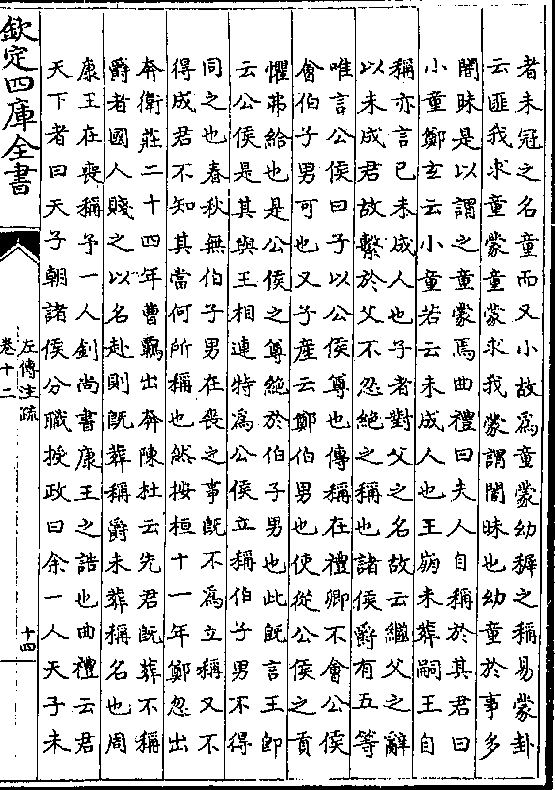 者未冠之名童而又小故為童蒙幼稺之稱易蒙卦
云匪我求童蒙童蒙求我蒙謂闇昧也幼童於事多
闇昧是以謂之童蒙焉曲禮曰夫人自稱於其君曰
小童鄭玄云小童若云未成人也王崩未葬嗣王自
稱亦言已未成人也子者對父之名故云繼父之辭
以未成君故繫於父不忍絶之稱也諸侯爵有五等
唯言公侯曰子以公侯尊也傳稱在禮卿不會公侯
會伯子男可也又子產云鄭伯男也使從公侯之貢
懼弗給也是公侯之尊絶於伯子男也此既言王即
云公侯是其與王相連特為公侯立稱伯子男不得
同之也春秋無伯子男在喪之事既不為立稱又不
得成君不知其當何所稱也然按桓十一年鄭忽出
奔衛莊二十四年曹羈出奔陳杜云先君既葬不稱
爵者國人賤之以名赴則既葬稱爵未葬稱名也周
康王在喪稱予一人釗尚書康王之誥也曲禮云君
天下者曰天子朝諸侯分職授政曰余一人天子未
欽定四庫全書
左傳注疏
卷十二
十四